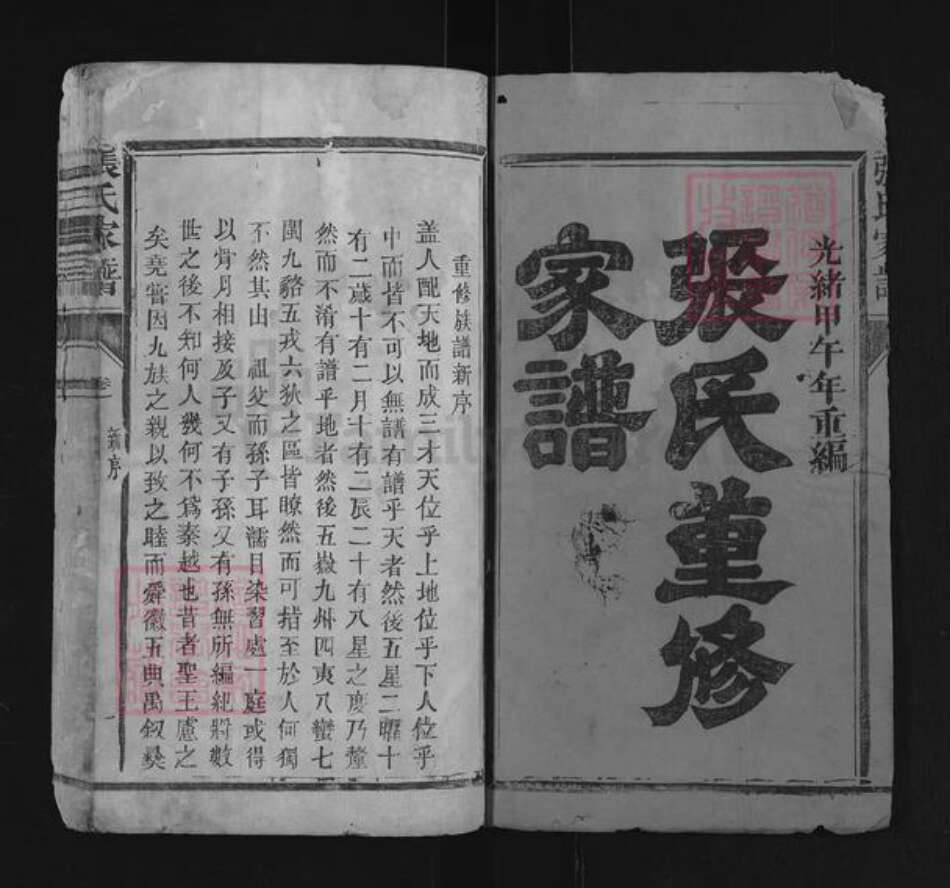 光緒甲午年重編
張氏重修
家譜
重修族譜新序
蓋人配天地而成三才天位乎上地位乎下人位乎
中而皆不可以無譜有譜乎天者然後五星二曜十
有二歲十有二月十有二辰二十有八星之度乃釐
然而不淆有譜乎地者然後五嶽九州四夷八蠻七
閩九貉五戎六狄之區皆瞭然而可指至於人何獨
不然其由 祖父而孫子耳濡目染習處一庭或得
以骨月相接及子又有子孫又有孫無所編紀將數
世之後不知何人幾何不爲秦越也昔者聖王慮之
矣堯嘗因九族之親以致之睦而舜徽五典禹叙彝
張氏家譜
卷
新序
張氏家譜